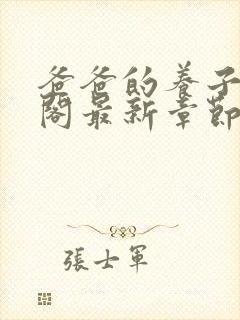 爸爸的養子
閣最新章節
張士軍